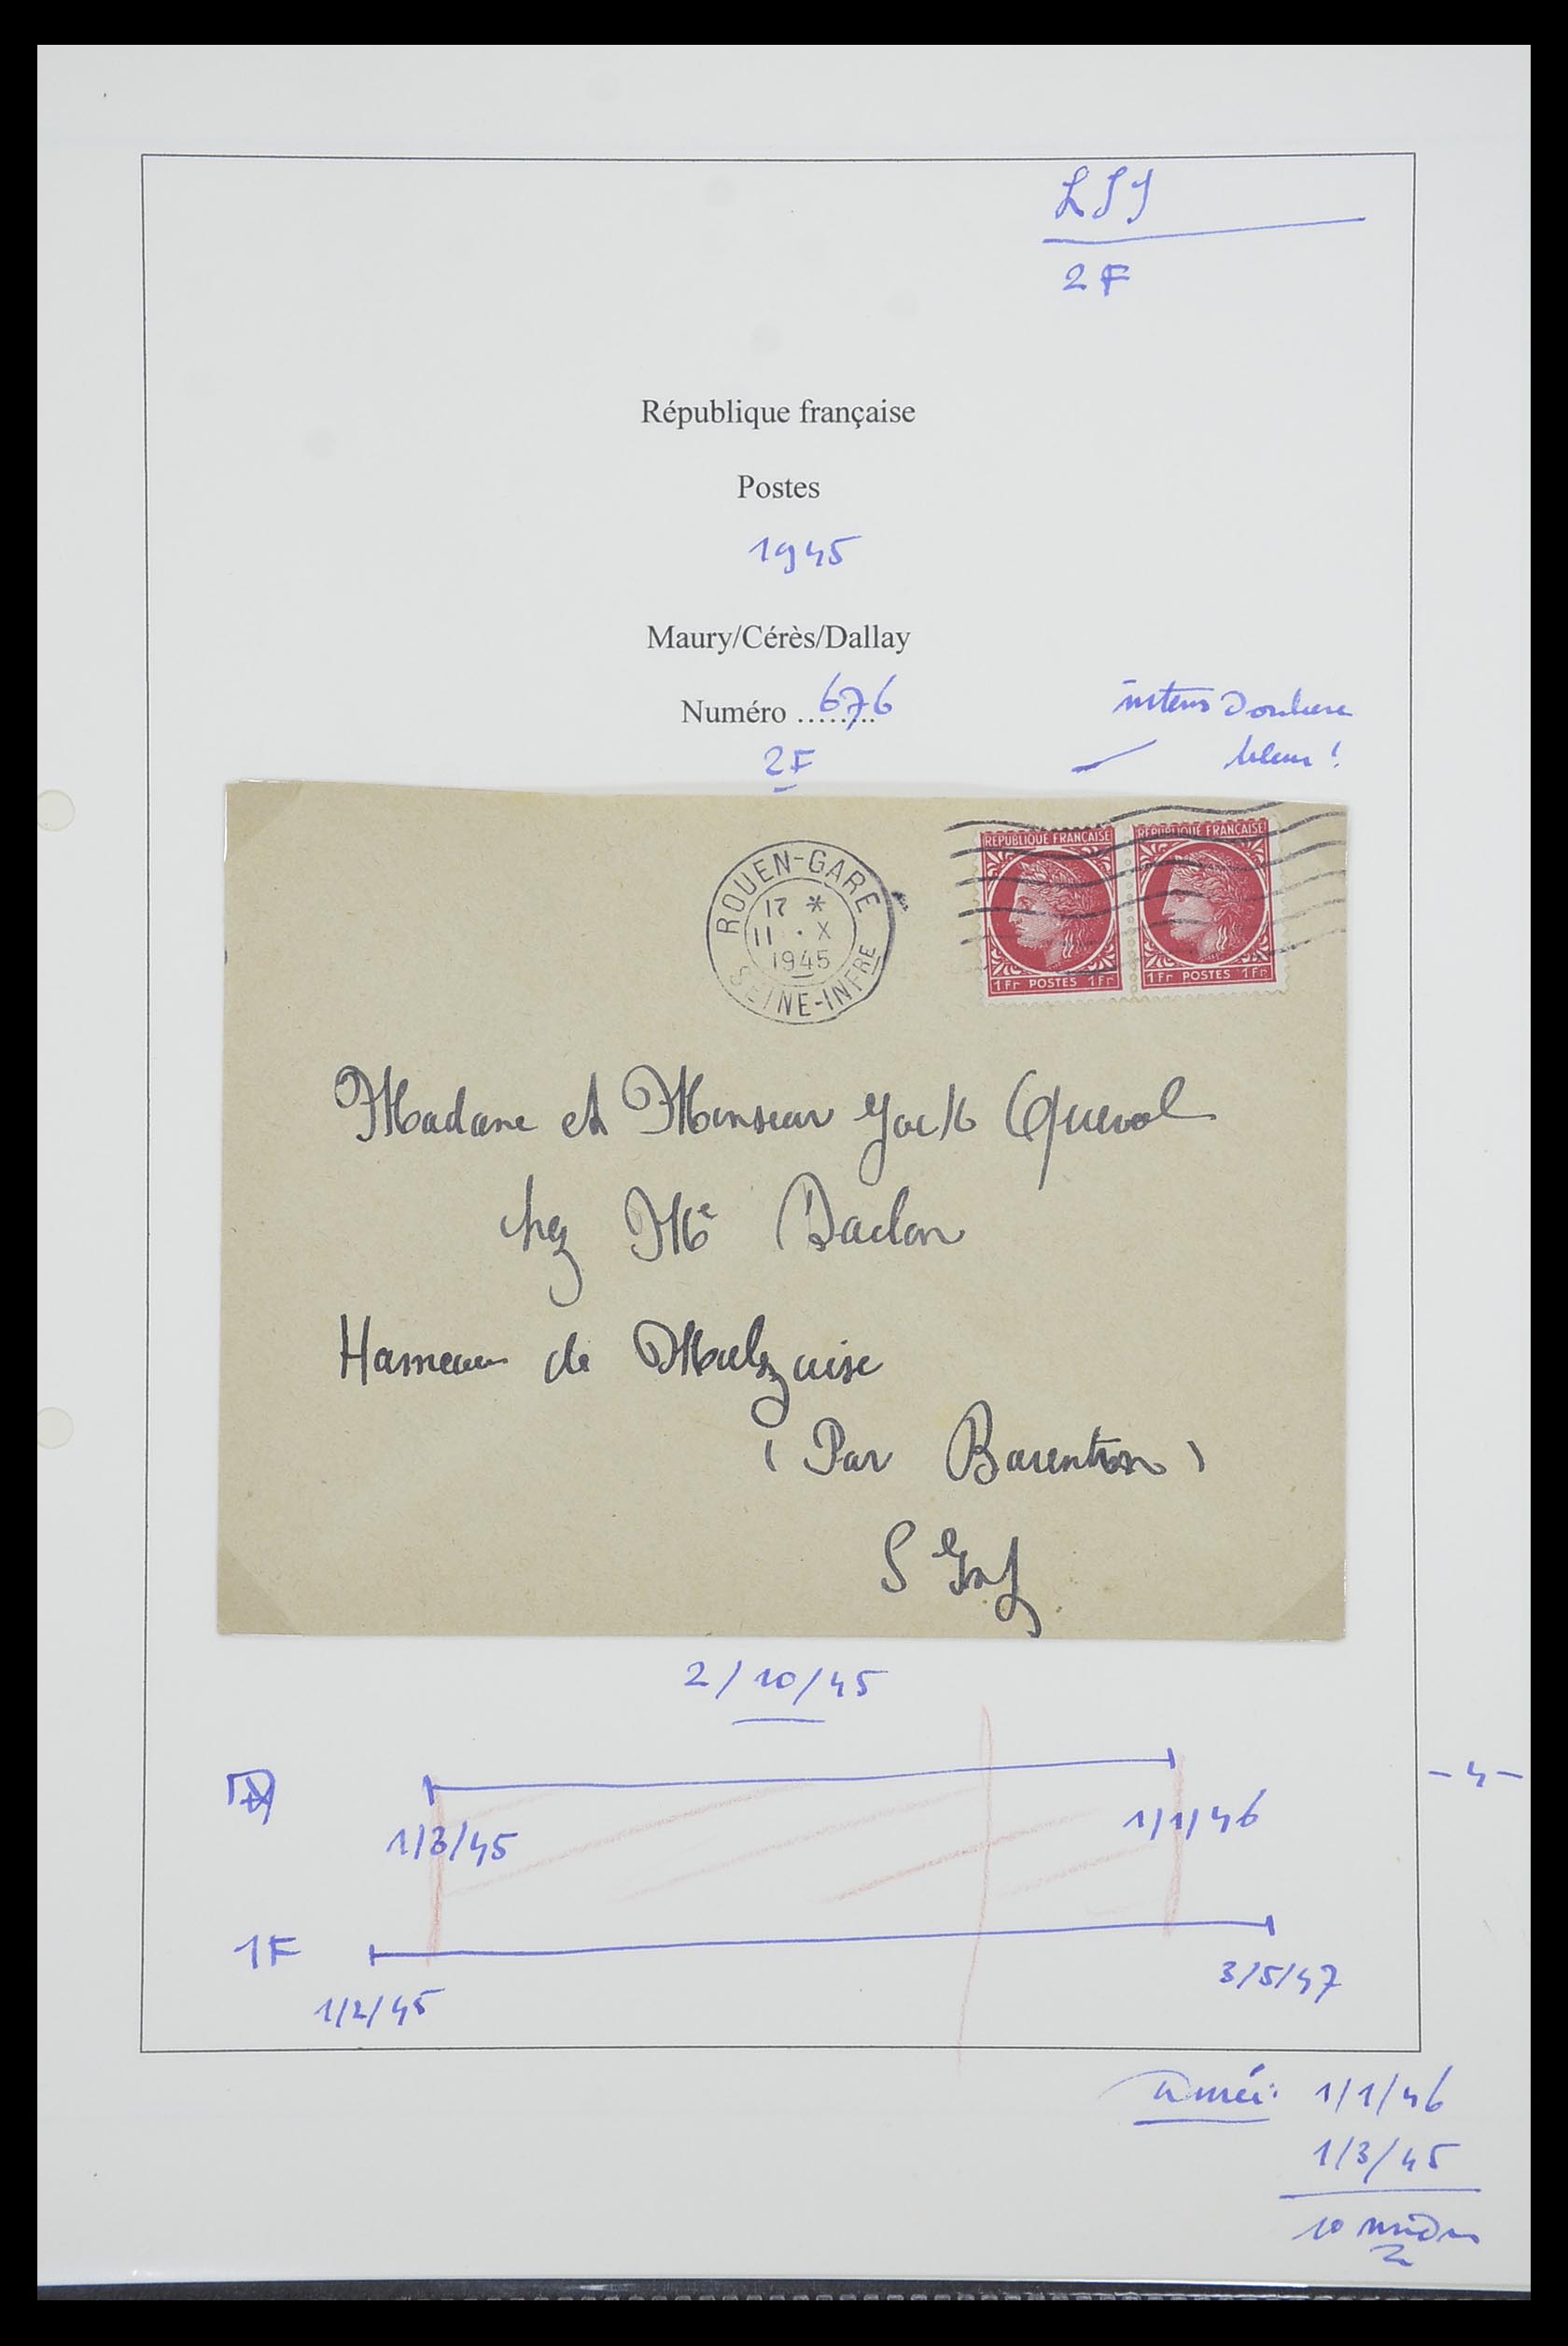 LSI
2F
République française
Postes
1945
Maury/Cérès/Dallay
Numéro ........ 676
2F
bleu !
ROUEN-GARE
17 *
11 . X
1945
SEINE-INFRE
REPUBLIQUE FRANÇAISE
1Fr POSTES 1Fr
REPUBLIQUE FRANÇAISE
1Fr POSTES 1Fr
Madame et Monsieur Queval
chez Me
Hameau de
( Par Barentin )
S Inf
2/10/45
1/3/45
1/1/46
- 4 -
1F
1/2/45
3/5/47
durée: 1/1/46
1/3/45
10 mois